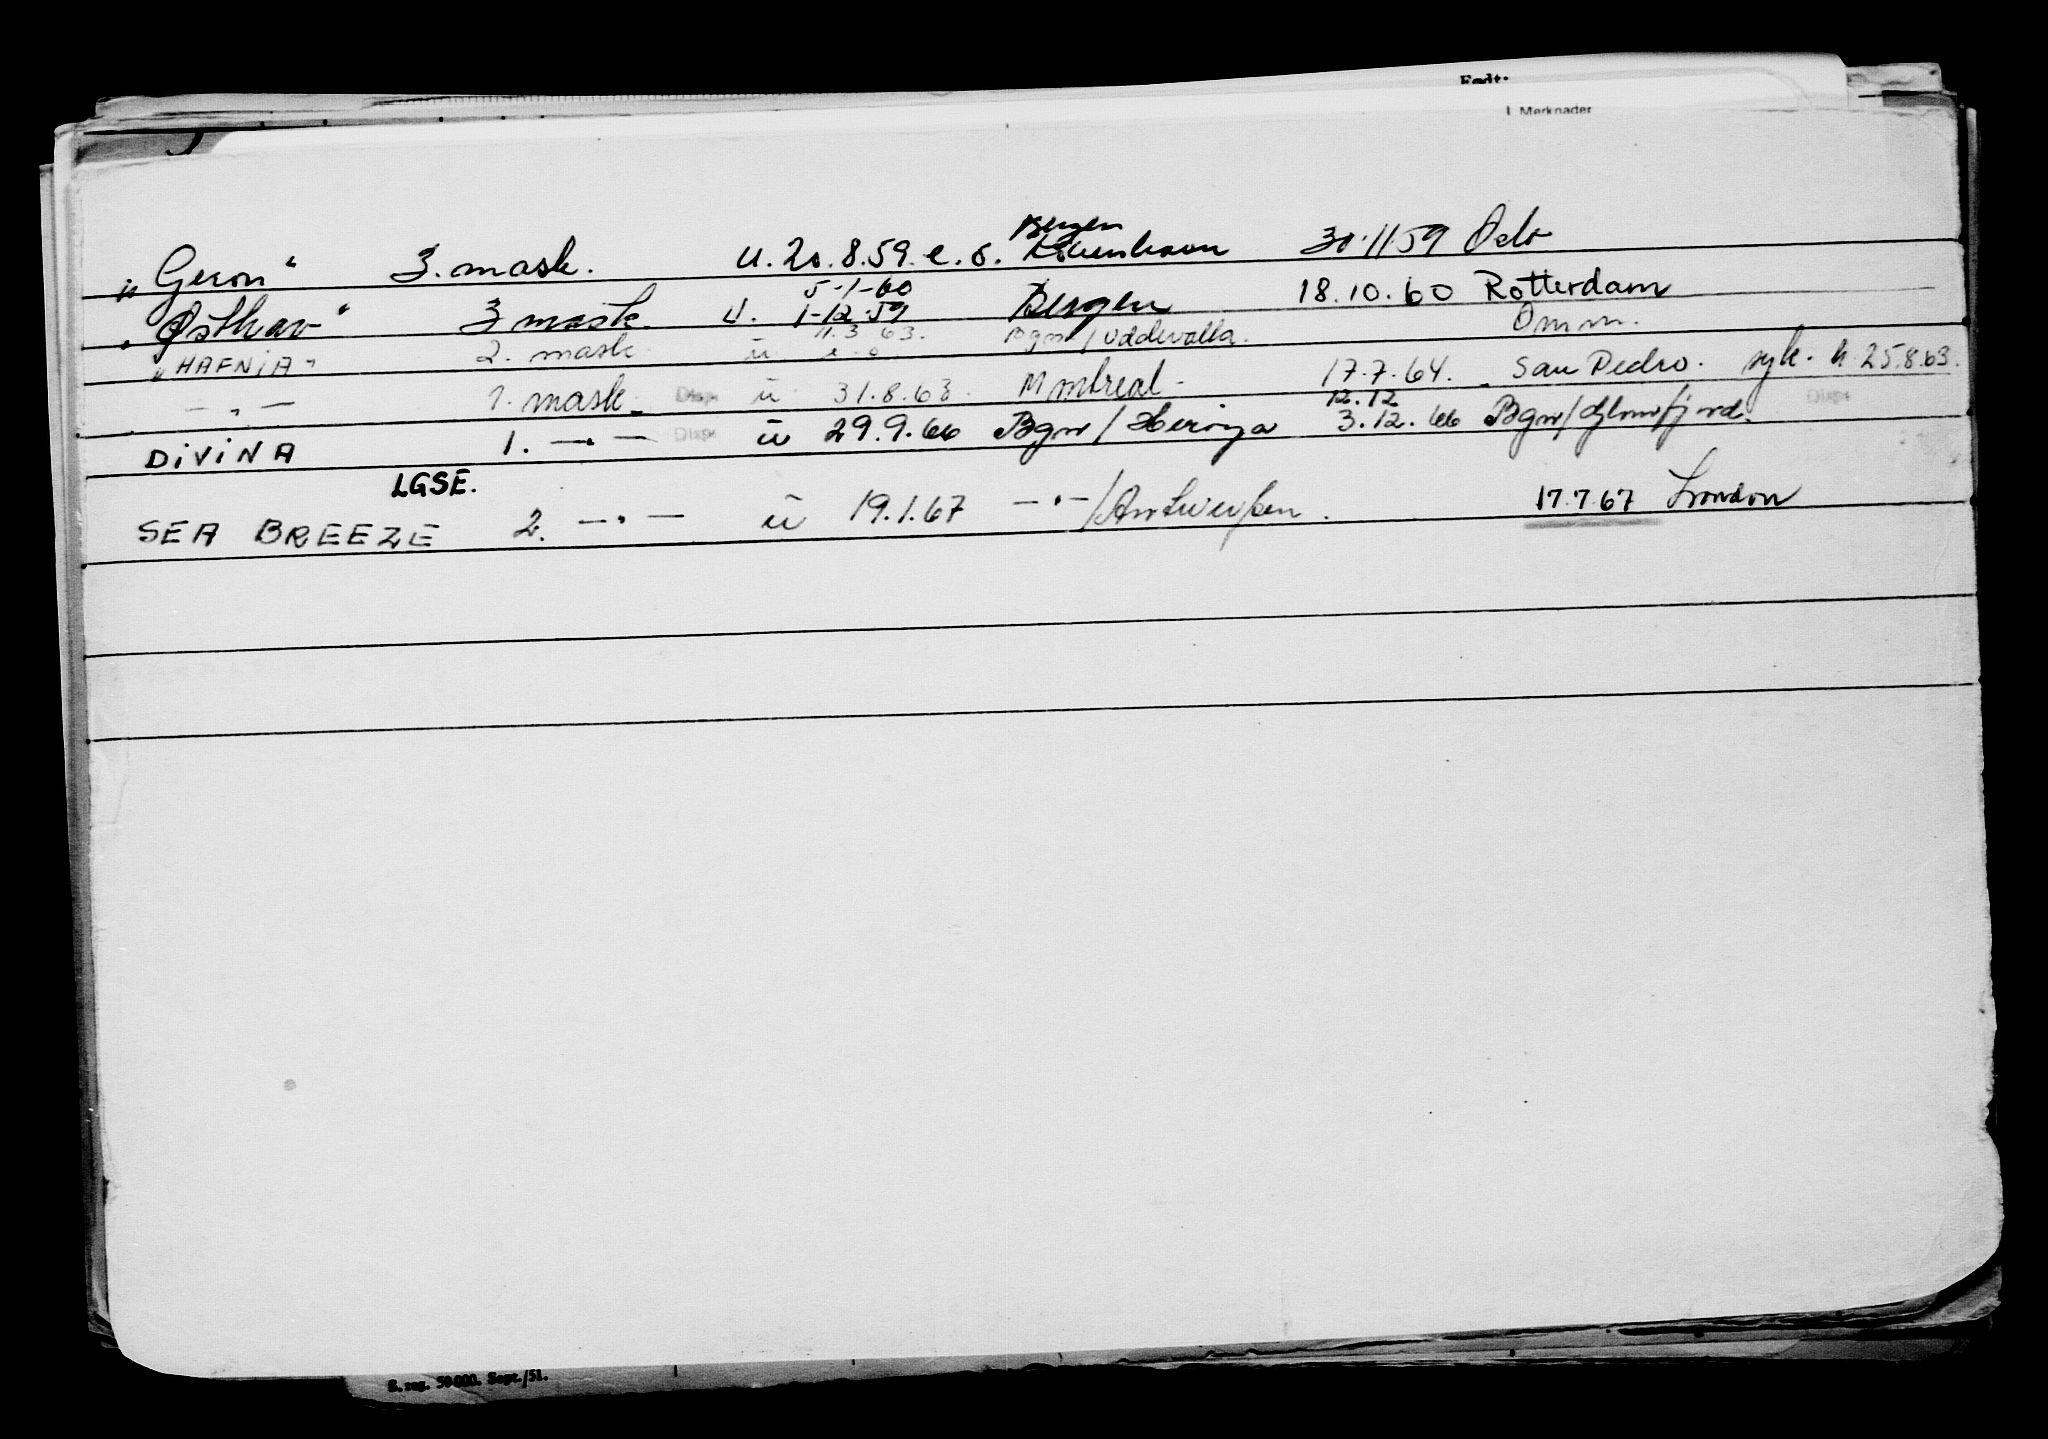 Født:
Merknader
Bergen
„Geron“ 3. mask. u. 20.8.59. e.o. København 30.11.59 Oslo
5-1-60
„Østhav“ 3 mask. u. 1-12.59 Bergen 18.10.60 Rotterdam
11.3.63. Omm.
„HAFNIA“ 2. mask. u e.o. Bgn/Uddevalla.
— „ — 1. mask. Disp. u 31.8.63 Montreal - 17.7.64. San Pedro. syk. h. 25.8.63. Disp.
12.12
DiViNA 1. — „ — Disp. u 29.9.66 Bgn/Herøya 3.12.66 Bgn/Glomfjord.
LGSE.
SEA BREEZE 2. — „ — u 19.1.67 — „ —/Antwerpen. 17.7.67 London
S. reg. 50 000. Sept./51.